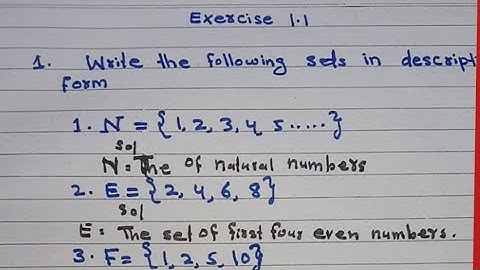 Exercise 1.1
1. Write the following sets in descript
form
1. N = {1, 2, 3, 4 5 .....}
Sol
N = The of natural numbers
2. E = {2, 4, 6, 8}
Sol
E = The set of first four even numbers.
3. F = {1, 2, 5, 10}